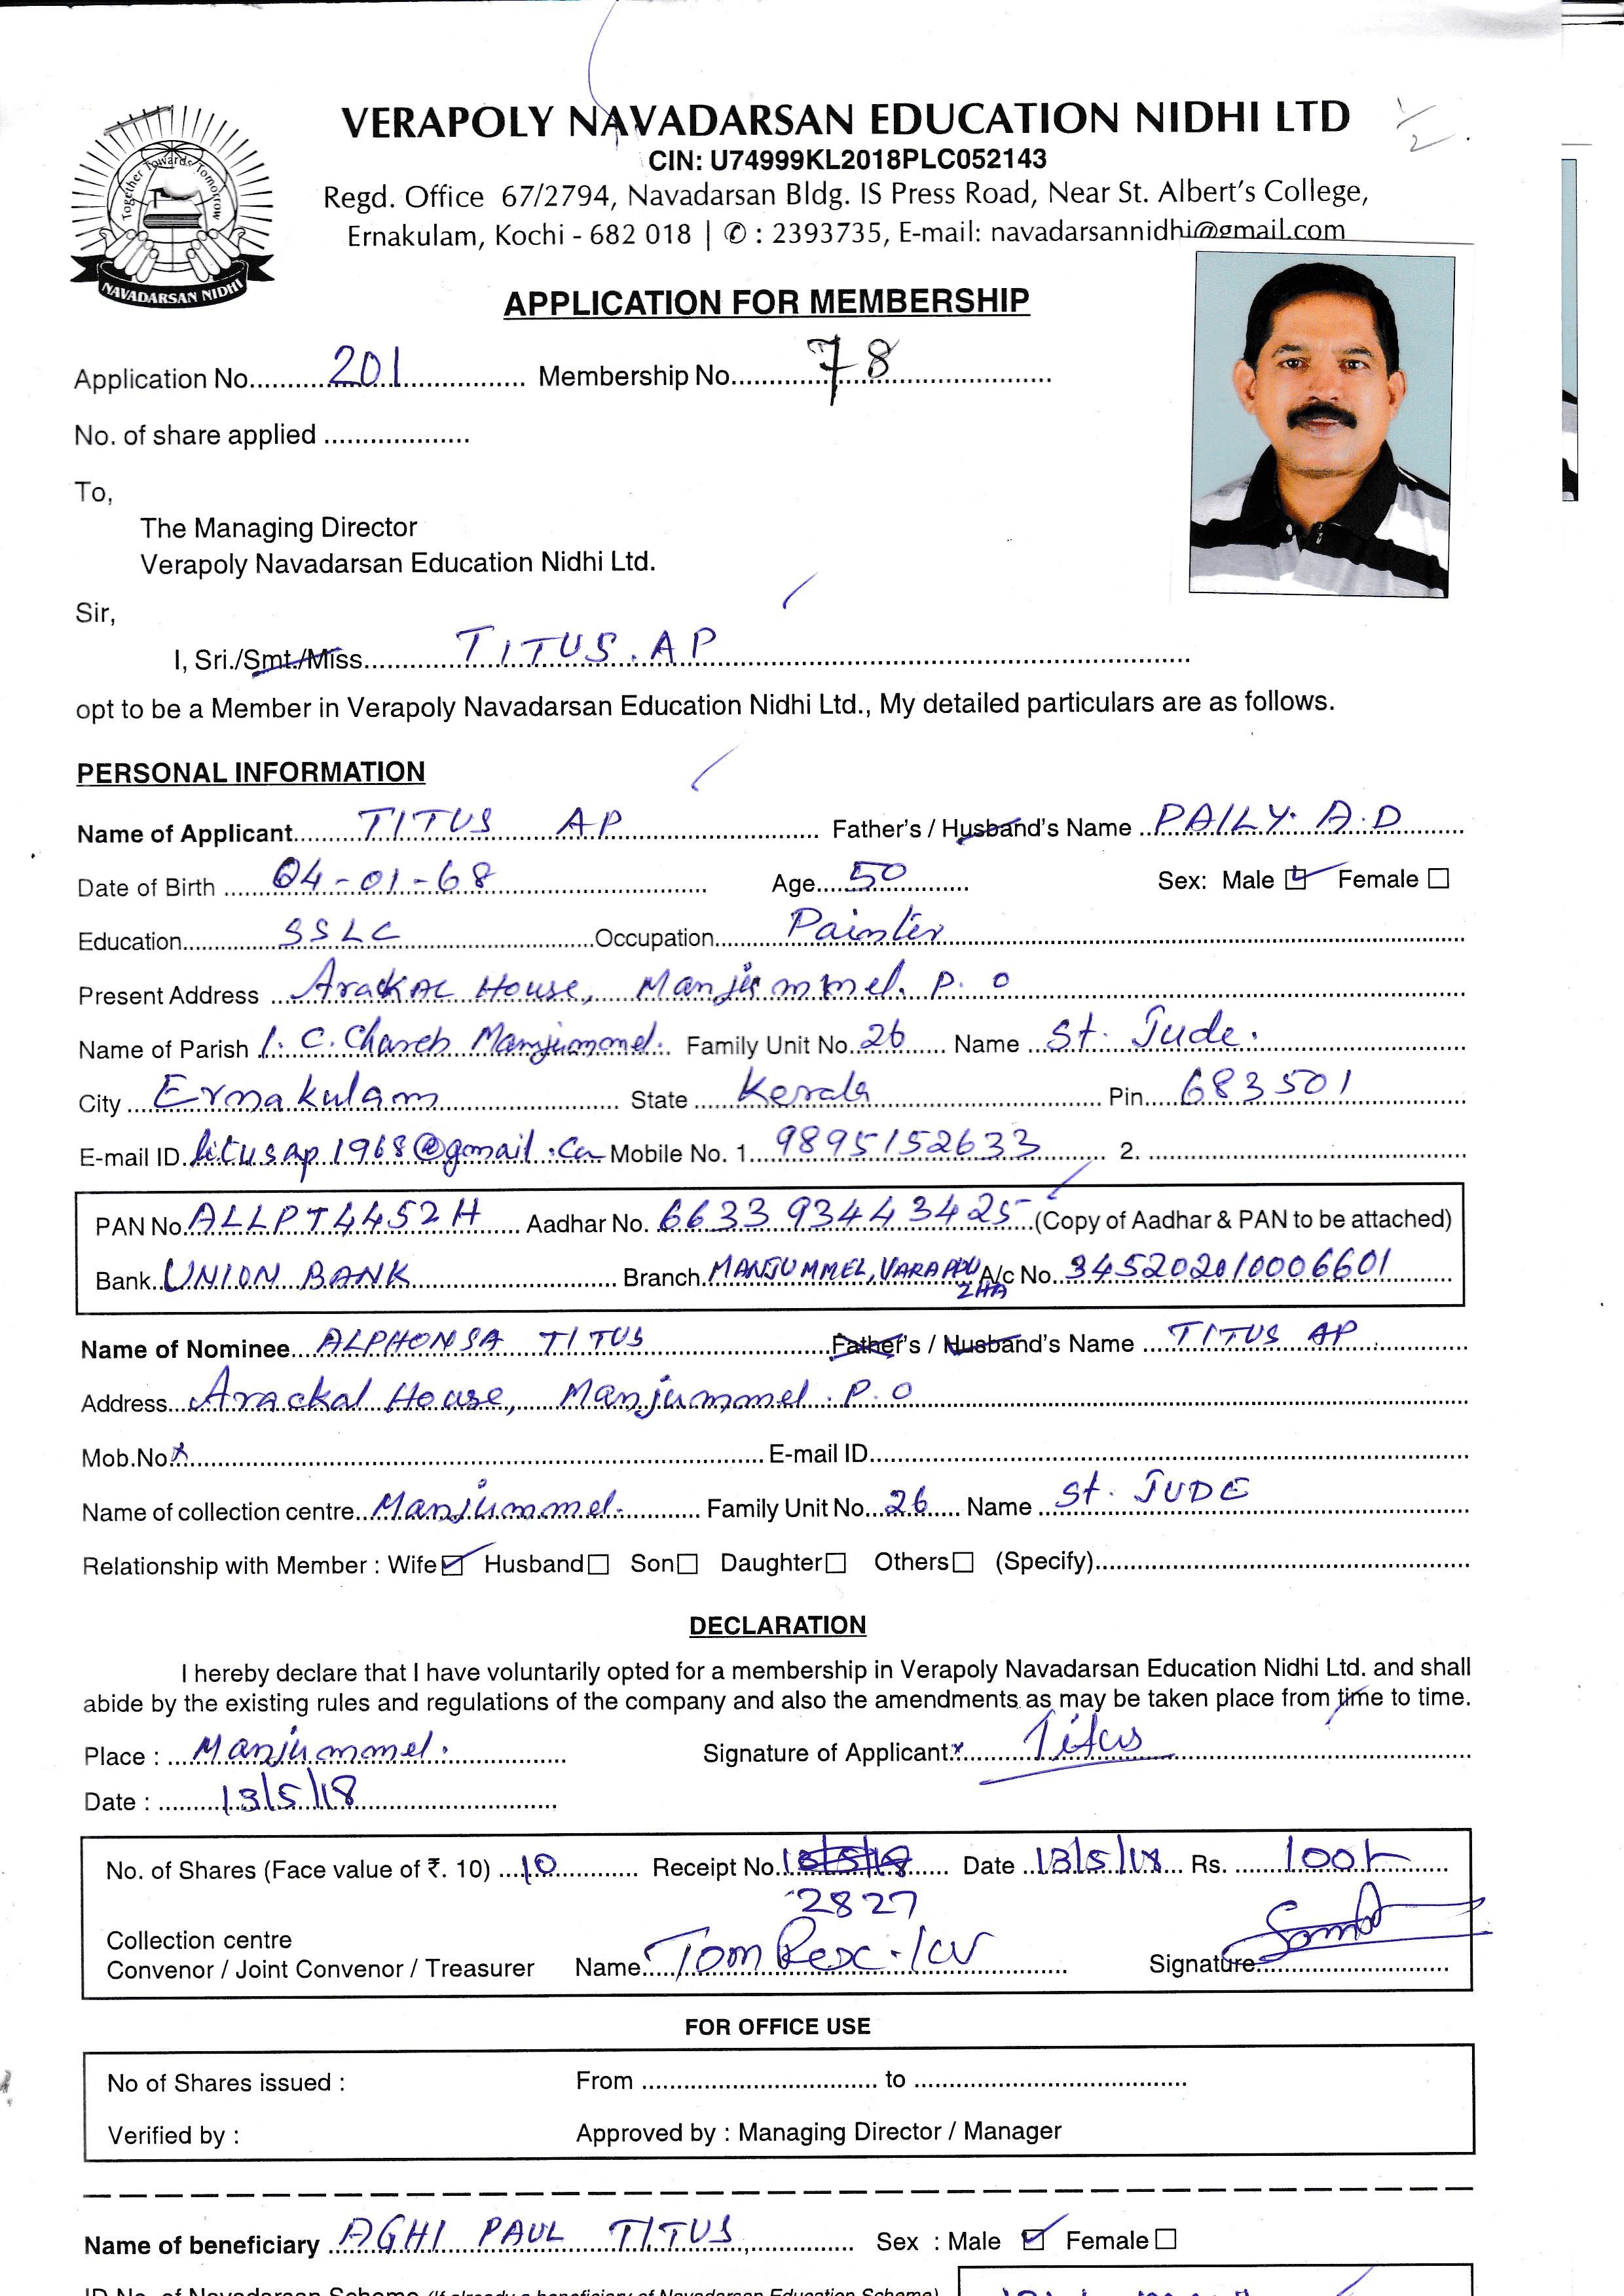 VERAPOLY NAVADARSAN EDUCATION NIDHI LTD
CIN: U74999KL2018PLC052143
Regd. Office 67/2794, Navadarsan Bldg. IS Press Road, Near St. Albert's College,
Ernakulam, Kochi - 682 018 | ✆ : 2393735, E-mail: navadarsannidhi@gmail.com
Together Towards Tomorrow
NAVADARSAN NIDHI
1/2
APPLICATION FOR MEMBERSHIP
Application No. 201 Membership No. 78
No. of share applied
To,
The Managing Director
Verapoly Navadarsan Education Nidhi Ltd.
Sir,
I, Sri./Smt./Miss. TITUS. AP
opt to be a Member in Verapoly Navadarsan Education Nidhi Ltd., My detailed particulars are as follows.
PERSONAL INFORMATION
Name of Applicant TITUS AP Father's / Husband's Name PAILY. A.D
Date of Birth 04-01-68 Age 50 Sex: Male ☑ Female ☐
Education SSLC Occupation Painter
Present Address Arackal House, Manjummel. P. O
Name of Parish I. C. Manjummel. Family Unit No. 26 Name St. Jude.
City Ernakulam State Kerala Pin 683501
E-mail ID titusap1968@gmail. Mobile No. 1 9895152633 2.
PAN No. ALLPT4452H Aadhar No. 6633 9344 3425 (Copy of Aadhar & PAN to be attached)
Bank UNION BANK Branch MANJUMMEL, VARAPPUZHA A/c No. 345202010006601
Name of Nominee ALPHONSA TITUS Father's / Husband's Name TITUS AP
Address Arackal House, Manjummel. P. O
Mob.No x E-mail ID
Name of collection centre Manjummel. Family Unit No. 26 Name St. JUDE
Relationship with Member : Wife ☑ Husband ☐ Son ☐ Daughter ☐ Others ☐ (Specify)
DECLARATION
I hereby declare that I have voluntarily opted for a membership in Verapoly Navadarsan Education Nidhi Ltd. and shall
abide by the existing rules and regulations of the company and also the amendments as may be taken place from time to time.
Place : Manjummel. Signature of Applicant x Titus
Date : 13/5/18
No. of Shares (Face value of ₹. 10) 10 Receipt No. 13/5/18 Date 13/5/18 Rs. 100/-
2827
Collection centre
Convenor / Joint Convenor / Treasurer Name Tom Signature
FOR OFFICE USE
No of Shares issued : From to
Verified by : Approved by : Managing Director / Manager
Name of beneficiary AGHI PAUL TITUS Sex : Male ☑ Female ☐
ID No. of Navadarsan Scheme (If already a beneficiary of Navadarsan Education Scheme)